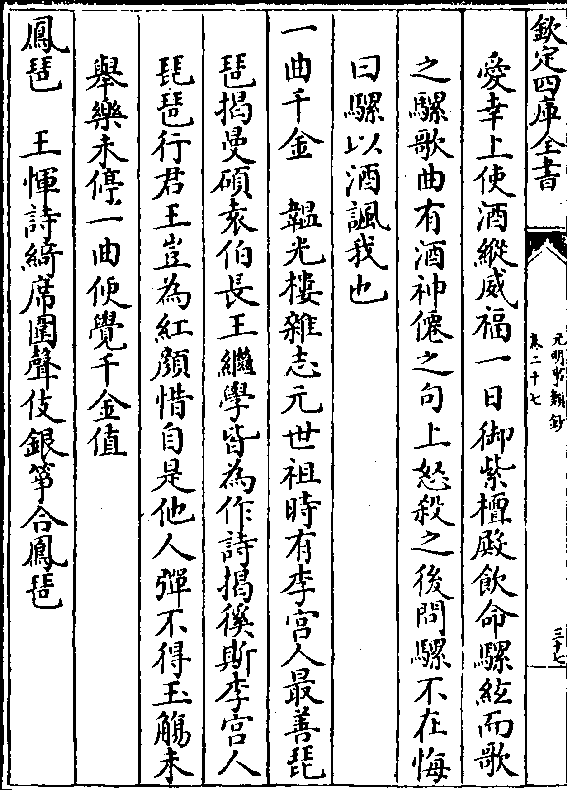 欽定四庫全書
元明事類鈔
卷二十七
三十七
愛幸上使酒縱威福一日御紫檀殿飲命騾絃而歌
之騾歌曲有酒神僊之句上怒殺之後問騾不在悔
曰騾以酒諷我也
一曲千金　韞光樓雜志元世祖時有李宫人最善琵
琶揭曼碩袁伯長王繼學皆為作詩揭徯斯李宫人
琵琶行君王豈為紅顔惜自是他人彈不得玉觴未
舉樂未停一曲便覺千金值
鳳琶　王惲詩綺席圍聲伎銀箏合鳳琶